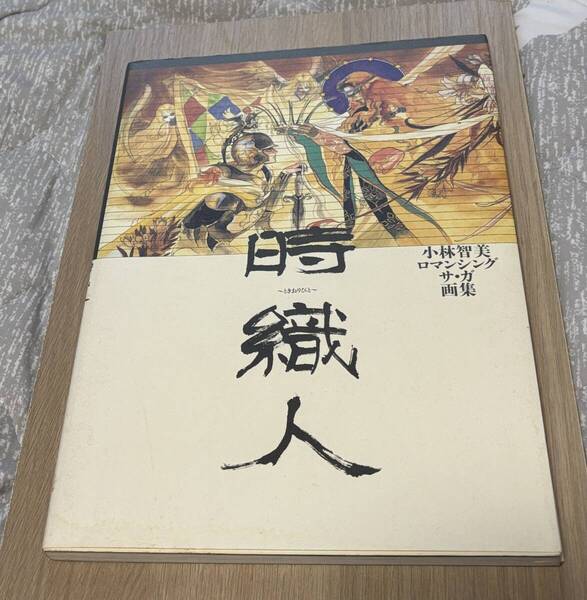 時
〜ときおりびと〜
織
人
小林智美
ロマンシング
サ・ガ
画集